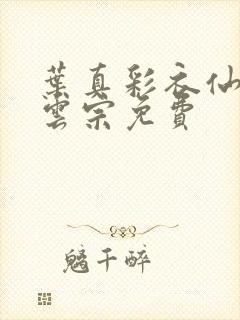 葉真彩衣仙
雲宗免費
魑千醉